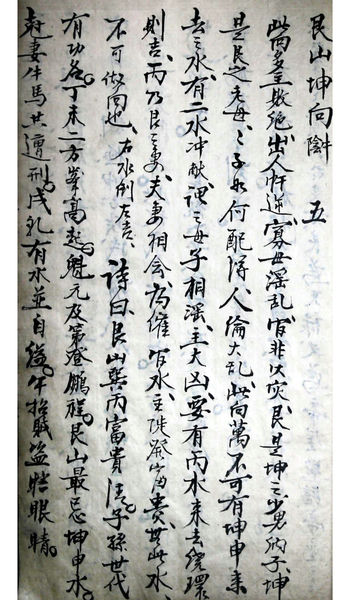 艮山坤向 五
此向多主败绝出人忤逆寡母淫乱官非火灾艮是坤之少男的子坤
是艮之老母母子如何配得人倫大乱此向萬不可有坤申来
去之水有二水冲献謂之母子相淫主大凶要有丙水来去绕環
則吉丙乃艮之妻夫妻相会为催官水主陡發富贵無此水
不可做向也右水倒左吉 詩曰艮山巽丙富貴清子孫世代
有功名丁未二方峯高起魁元及第登鵬程艮山最忌坤申水
尅妻牛馬共遭刑戌乳有水並自缢午招贼盗瞎眼睛